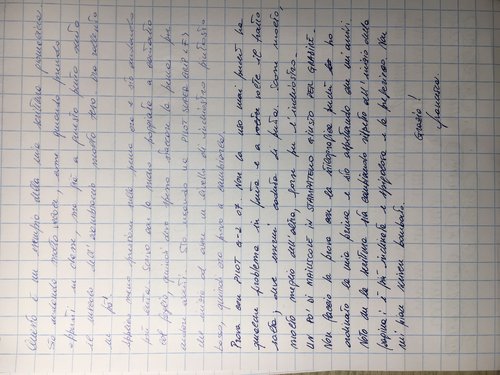 Questo è un esempio della mia scrittura quotidiana.
Sto andando molto veloce, come quando prendo
appunti in classe, ma già a questo punto sento
il muscolo dell'avambraccio molto teso. Ora rallento
un po'.
Applico meno pressione sulla penna ora e sto andando
più lenta. Scrivo con la mano poggiata a contatto
col foglio, quindi devo spesso staccare la penna per
andare avanti. Sto usando una PILOT SUPER GRIP
che inizia ad avere un livello di inchiostro piuttosto
basso, quindi ora provo a cambiarla.
Prova con PILOT G-2 07. Non la uso mai perché ha
qualche problema in punta e a volte il tratto
salta, deve essermi caduta di punta. Scorre molto,
molto meglio dell'altra, forse per l'inchiostro.
UN PO' DI MAIUSCOLE IN STAMPATELLO GIUSTO PER GRADIRE.
Non faccio la prova con la stilografica perché ho
ordinato la mia prima e sto aspettando che mi arrivi.
Noto che la scrittura sta cambiando rispetto all'inizio della
pagina: è più inclinata e spigolosa e la preferisco. Non
mi piace scrivere bombato.
Grazie!
Francesca.